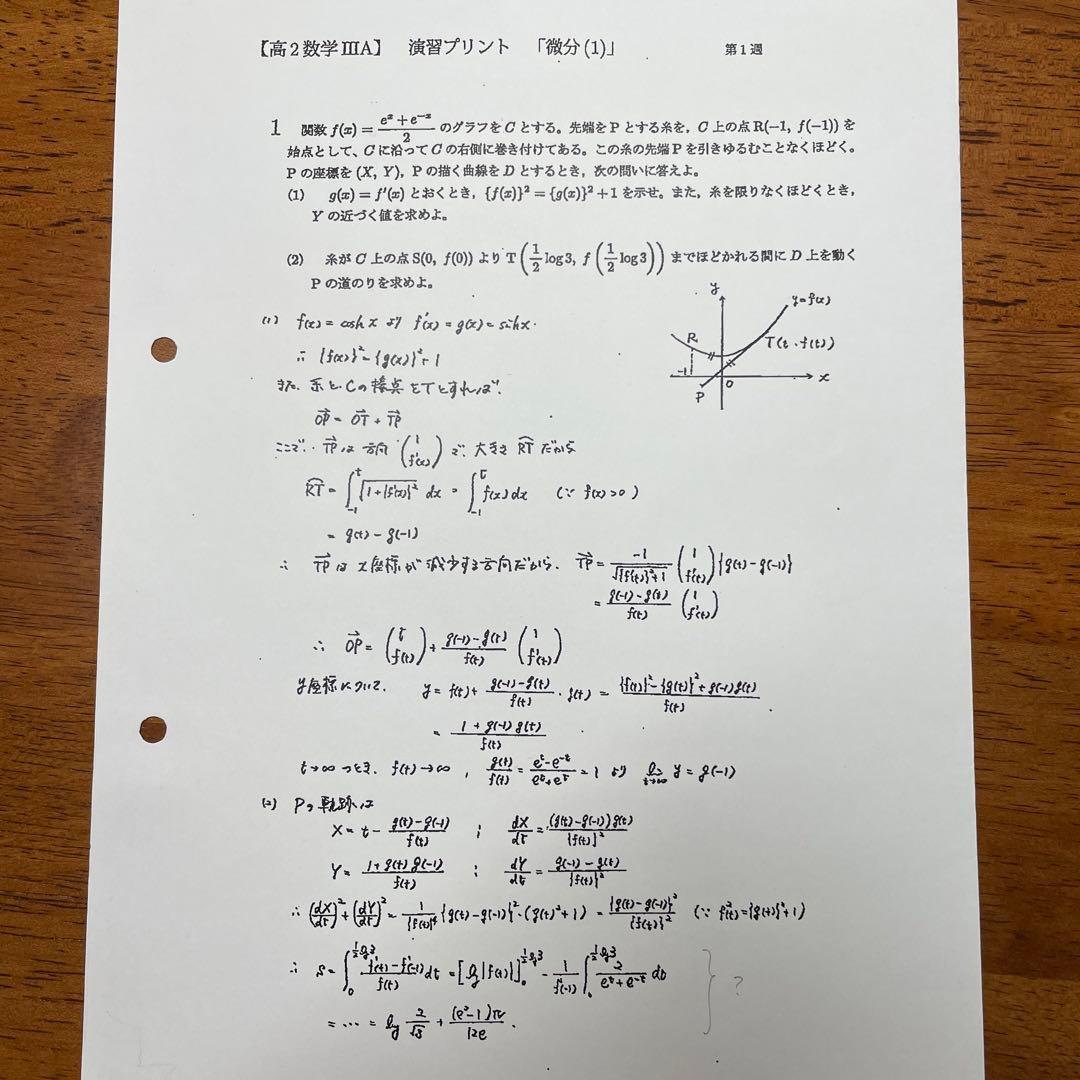 【高2数学ⅢA】 演習プリント 「微分(1)」 第1週
1 関数 f(x) = \frac{e^x + e^{-x}}{2} のグラフを C とする。先端を P とする糸を，C 上の点 R(−1, f(−1)) を
始点として、C に沿って C の右側に巻き付けてある。この糸の先端 P を引きゆるむことなくほどく。
P の座標を (X, Y)，P の描く曲線を D とするとき，次の問いに答えよ。
(1) g(x) = f'(x) とおくとき，{f(x)}² = {g(x)}² + 1 を示せ。また，糸を限りなくほどくとき，
Y の近づく値を求めよ。
(2) 糸が C 上の点 S(0, f(0)) より T(\frac{1}{2}log3, f(\frac{1}{2}log3)) までほどかれる間に D 上を動く
P の道のりを求めよ。
y
y=f(x)
R
T(t, f(t))
-1
0
x
P
(1) f(x) = cosh x より f'(x) = g(x) = sinh x.
∴ {f(x)}² = {g(x)}² + 1
また、糸と C の接点を T とすれば、
\vec{OP} = \vec{OT} + \vec{TP}
ここで、\vec{TP} は 方向 \binom{1}{f'(x)} で、大きさ \overset{\frown}{RT} だから
\overset{\frown}{RT} = \int_{-1}^{t} \sqrt{1+{f'(x)}²} dx = \int_{-1}^{t} f(x) dx (∵ f(x) > 0)
= g(t) − g(−1)
∴ \vec{TP} は x座標が減少する方向だから、 \vec{TP} = \frac{-1}{\sqrt{{f'(t)}²+1}} \binom{1}{f'(t)} {g(t) − g(−1)}
= \frac{g(-1)-g(t)}{f(t)} \binom{1}{f'(t)}
∴ \vec{OP} = \binom{t}{f(t)} + \frac{g(-1)-g(t)}{f(t)} \binom{1}{f'(t)}
y座標について、 y = f(t) + \frac{g(-1)-g(t)}{f(t)} · g(t) = \frac{{f(t)}²-{g(t)}²+g(-1)g(t)}{f(t)}
= \frac{1+g(-1)g(t)}{f(t)}
t→∞ のとき、 f(t)→∞ , \frac{g(t)}{f(t)} = \frac{e^t-e^{-t}}{e^t+e^{-t}} = 1 より \lim_{t→∞} y = g(−1)
(2) P の軌跡は
X = t − \frac{g(t)-g(-1)}{f(t)} ; \frac{dX}{dt} = \frac{(g(t)-g(-1))g(t)}{{f(t)}²}
Y = \frac{1+g(t)g(-1)}{f(t)} ; \frac{dY}{dt} = \frac{g(-1)-g(t)}{{f(t)}²}
∴ (\frac{dX}{dt})² + (\frac{dY}{dt})² = \frac{1}{{f(t)}^4} {g(t)-g(-1)}²·(g(t)²+1) = \frac{{g(t)-g(-1)}²}{{f(t)}²} (∵ f²(t) = {g(t)}²+1)
∴ S = \int_0^{\frac{1}{2}log3} \frac{f'(t)-f'(-1)}{f(t)} dt = [log|f(t)|]_0^{\frac{1}{2}log3} − \frac{1}{f'(-1)} \int_0^{\frac{1}{2}log3} \frac{2}{e^t+e^{-t}} dt
?
= ⋯ = log \frac{2}{\sqrt{3}} + \frac{(e²-1)π}{12e} .